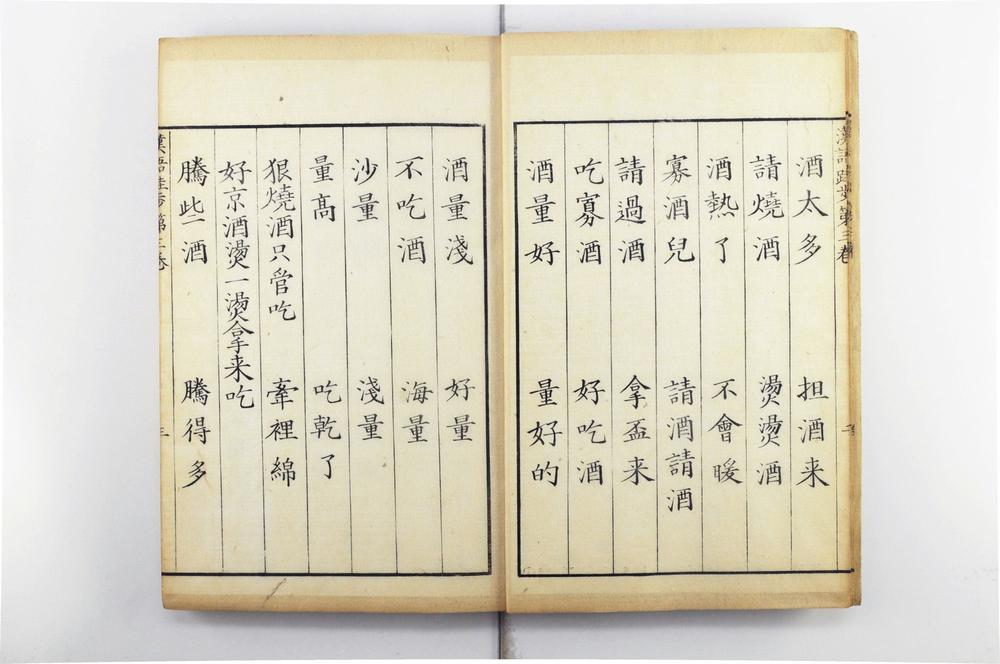 漢語跬步第三卷
酒太多　担酒来
請燒酒　燙燙酒
酒熱了　不會暖
寡酒兒　請酒請酒
請過酒　拿盃来
吃寡酒　好吃酒
酒量好　量好的
酒量淺　好量
不吃酒　海量
沙量　淺量
量高　吃乾了
狠燒酒只管吃　牽裡綿
好京酒燙一燙拿来吃
騰些酒　騰得多
漢語跬步第三卷